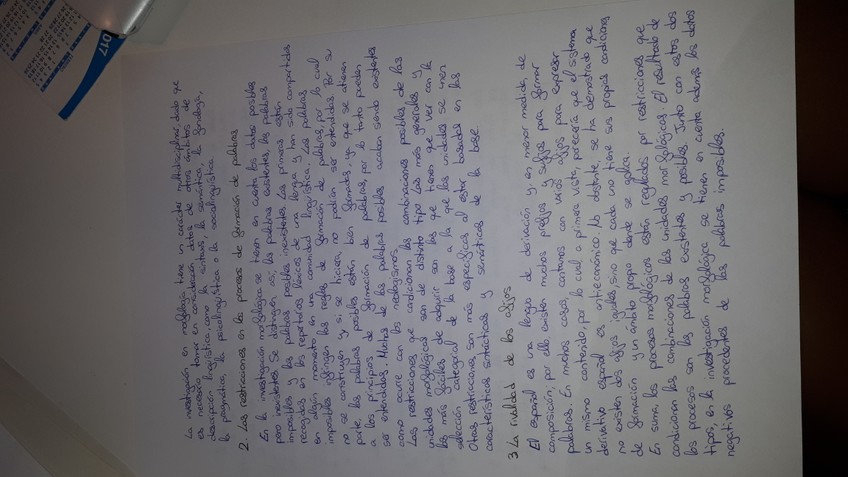 La investigación en morfología tiene un carácter multidisciplinar, dado que
es necesario tomar en consideración datos de otros ámbitos de
descripción lingüística, como la sintaxis, la semántica, la fonología,
la pragmática, la psicolingüística o la sociolingüística.
2. Las restricciones en los procesos de formación de palabras
En la investigación morfológica se tienen en cuenta los datos posibles
pero inexistentes. Se distinguen así, las palabras existentes, las palabras
imposibles y las palabras posibles inexistentes. Las primeras están
recogidas en los repertorios léxicos de una lengua y han sido compartidas
en algún momento en una comunidad lingüística. Las palabras
imposibles infringen las reglas de formación de palabras, por lo cual
no se construyen y, si se hiciera, no podrían ser entendidas. Por su
parte, las palabras posibles están bien formadas, ya que se atienen
a los principios de formación de palabras, por lo tanto pueden
ser entendidas. Muchas de las palabras posibles acaban siendo existentes
como ocurre con los neologismos.
Las restricciones que condicionan las combinaciones posibles de las
unidades morfológicas son de distinto tipo. Las más generales y
las más fáciles de adquirir son las que tienen que ver con la
selección categorial de la base a la que las unidades se unen.
Otras restricciones son más específicas al estar basadas en las
características sintácticas y semánticas de la base.
3 La rivalidad de los afijos
El español es una lengua de derivación y, en menor medida, de
composición, por ello existen muchos prefijos y sufijos para formar
palabras. En muchos casos, contamos con varios afijos para expresar
un mismo contenido, por lo cual a primera vista, parecería que el sistema
derivativo español es antieconómico. No obstante, se ha demostrado que
no existen dos afijos iguales, sino que cada uno tiene sus propias condiciones
de formación y un ámbito propio donde se aplica.
En suma, los procesos morfológicos están reglados por restricciones que
condicionan las combinaciones de las unidades morfológicas. El resultado de
los procesos son las palabras existentes y posibles. Junto con estos dos
tipos, en la investigación morfológica se tienen en cuenta además los datos
negativos procedentes de las palabras imposibles.
2017